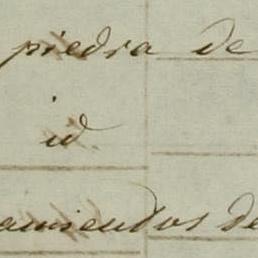 piedra de
id
amientos de